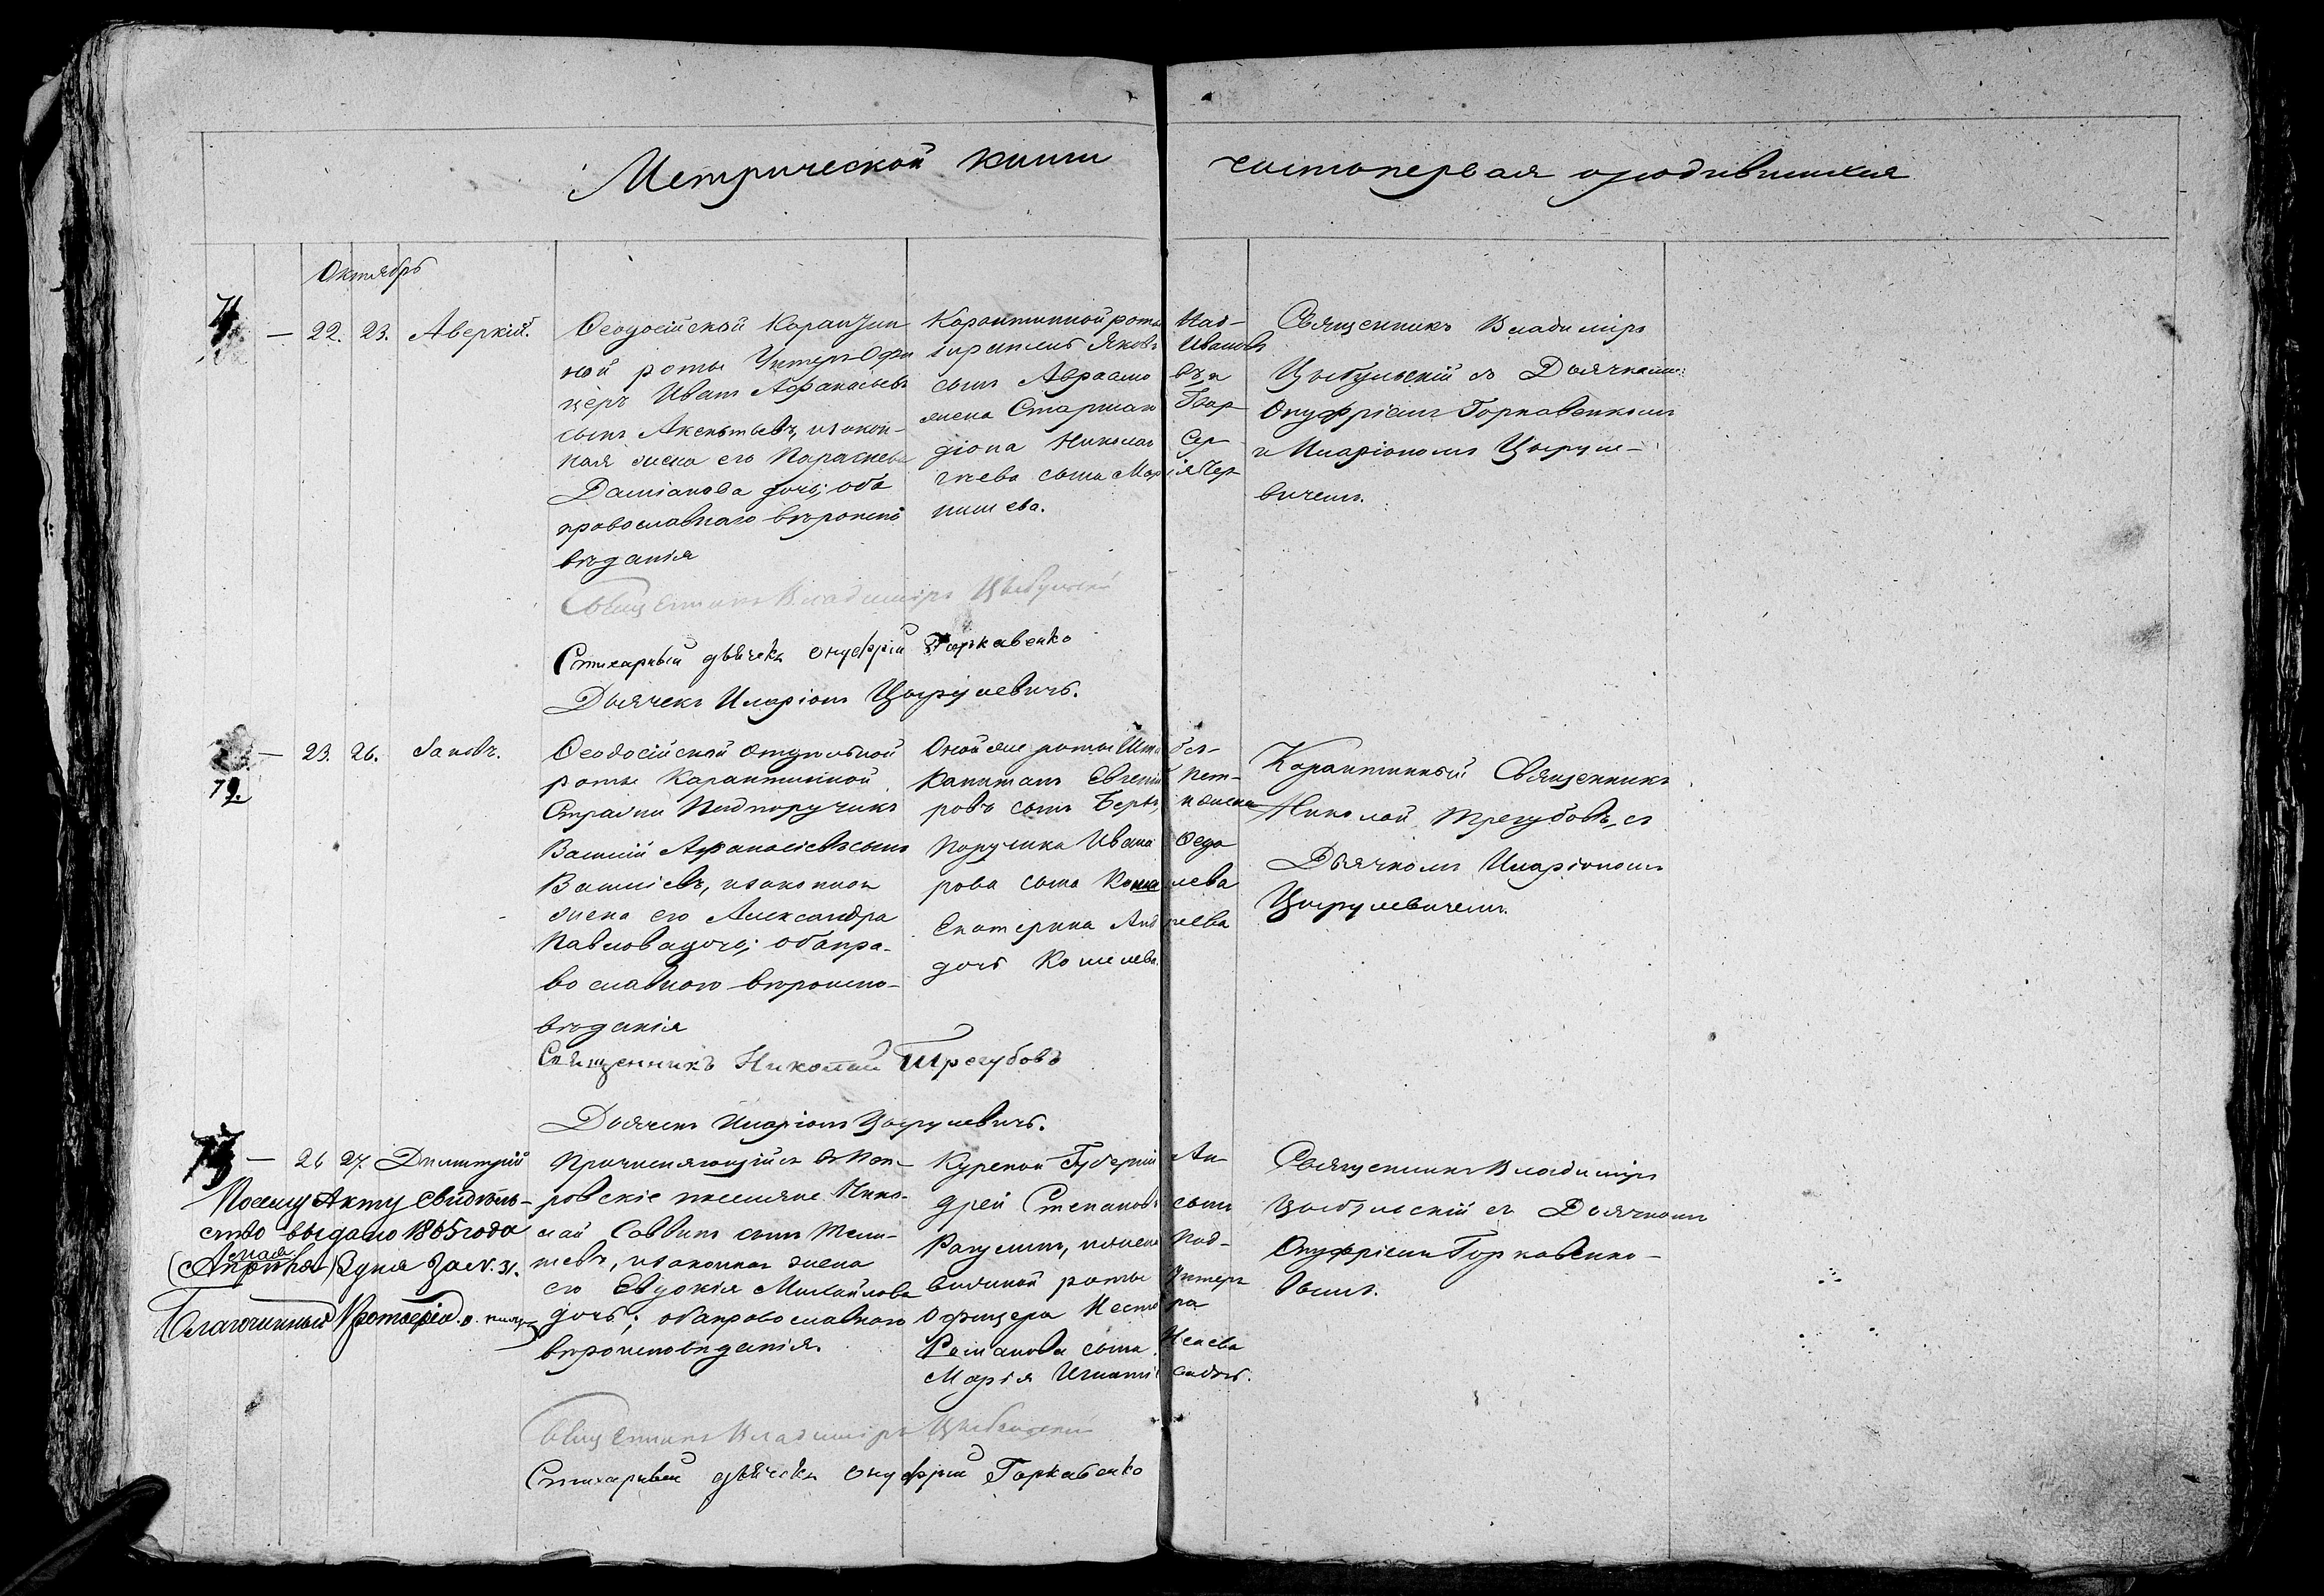 Метрической книги часть первая о родившихся
Октябрь
71. — 22. 23. Аверкій.
Ѳеодосійской Карантин
ной роты Унтеръ-Офи
церъ Иванъ Аѳанасьевъ
сынъ Аксентьевъ, и закон-
ная жена его Параскева
Даміанова дочь; оба
православнаго вѣроиспо
вѣданія
Карантинной роты Над-
зиратель Яковъ Ивановъ
сынъ Авраамо въ, и
жена Старшаго Гвар-
діона Николая Сер-
гѣева сына Марія Чер-
нышева.
Священникъ Владиміръ
Цыбульскій съ Дьячками:
Онуфріемъ Горкавенкомъ
и Иларіономъ Цыруле-
вичемъ.
Священникъ Владиміръ Цыбульскій
Стихарный дьячекъ Онуфрій Горкавенко
Дьячекъ Иларіонъ Цырулевичъ.
72. — 23. 26. Іаковъ.
Ѳеодосійской отдѣльной
роты Карантинной
Стражи Подпоручикъ
Василій Аѳанасіевъ сынъ
Васильевъ, и законная
жена его Александра
Павлова дочь; оба пра-
вославного вѣроиспо-
вѣданія
Оной же роты Штабсъ-
Капитанъ Евгеній Пет-
ровъ сынъ Бервъ, и жена
Поручика Ивана Ѳедо
рова сына Кошелева
Екатерина Андреева
дочь Кошелева.
Карантинный Священникъ
Николай Трегубовъ, съ
Дьячкомъ Иларіономъ
Цырулевичемъ.
Священникъ Николай Трегубовъ
Дьячекъ Иларіонъ Цырулевичъ.
73 — 26 27. Димитрій
Посему Акту свидѣтель-
ство выдано 1865 года
мая
(Апрѣля) 2 дня за №. 31.
Благочинный Протоіерей
Причисляющійся въ Пок-
ровскіе поселяне Нико-
лай Саввинъ сынъ
и законная жена
его Евдокія Михайлова
дочь; оба православнаго
вѣроисповѣданія.
Курской Губерніи Ан-
дрей Степановъ сынъ
и жена Под-
вижной роты Унтеръ
Офицера Нестора
Романова сына Исаева
Марія Игнатіева дочь.
Священникъ Владиміръ
Цыбульскій съ Дьячкомъ
Онуфріемъ Горкавенко-
вымъ.
Священникъ Владиміръ Цыбульскій
Стихарный дьячекъ Онуфрій Горкавенко